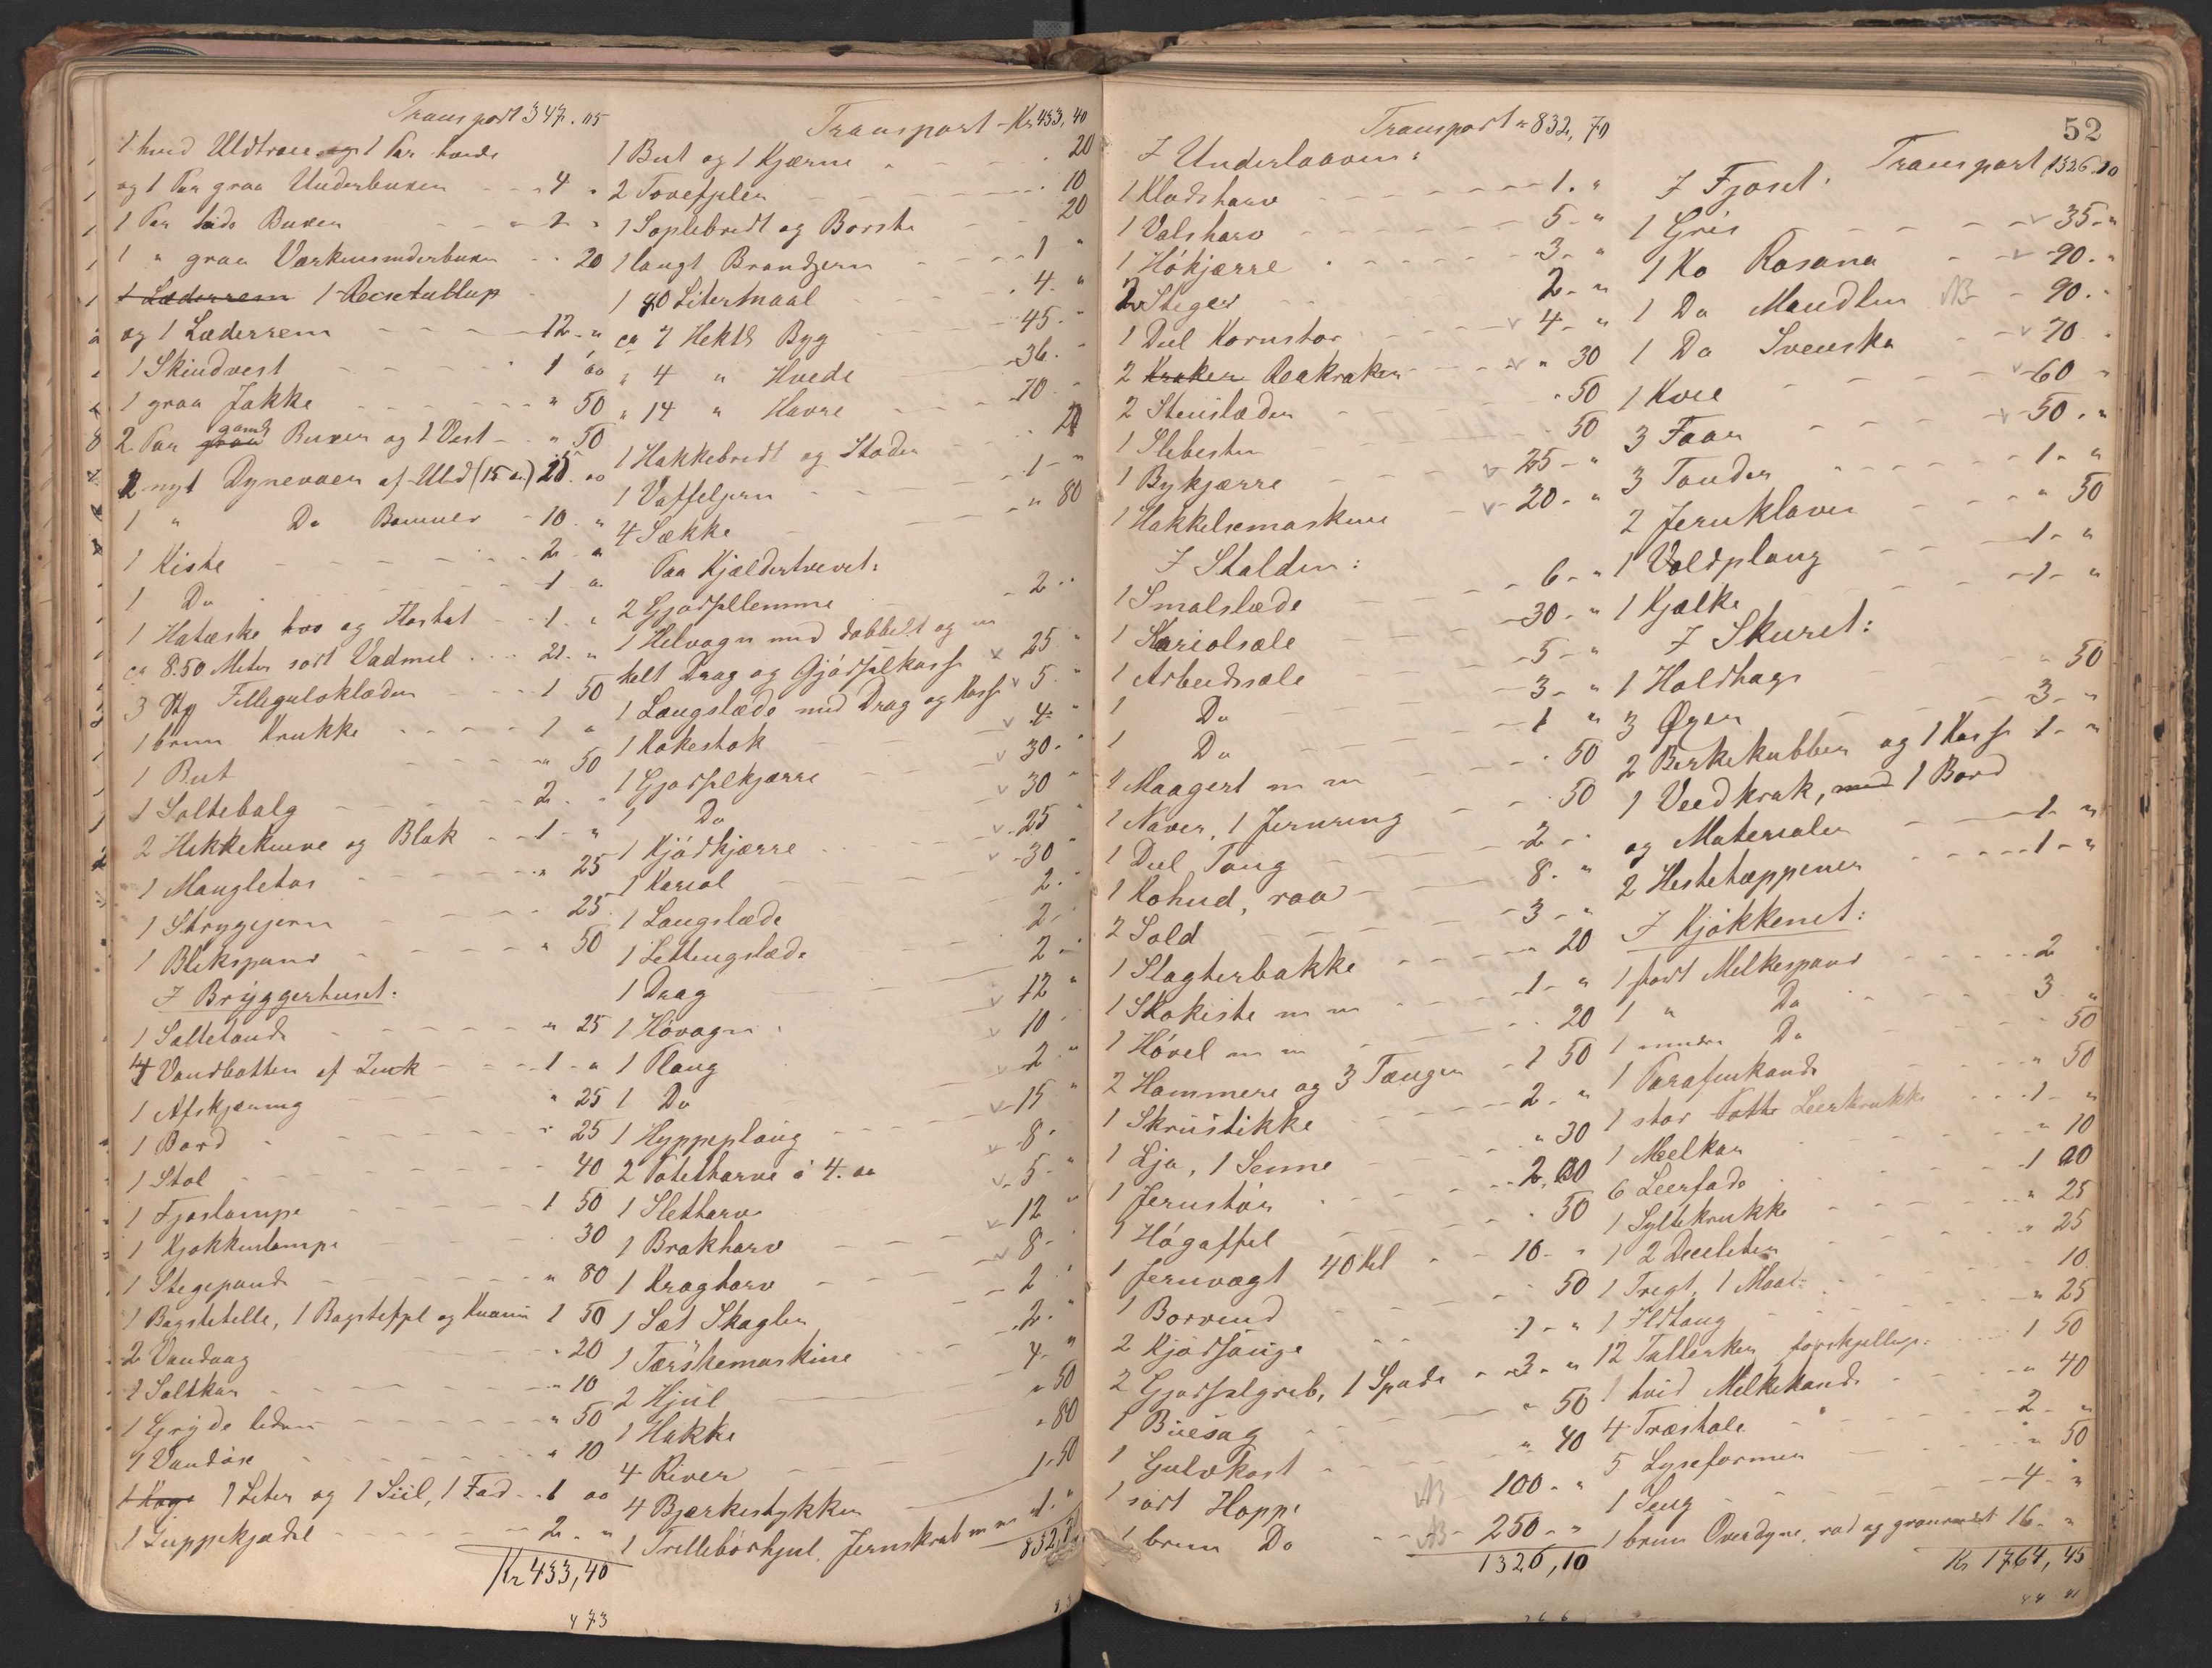 Transport 347.05
1 hvid Uldtrøie og 1 Par hvide
og 1 Par graa Underbuxer 4 "
1 Par hvide Buxer 2 "
1 " graa Værkensunderbuxer 20
1 Læderrem 1
og 1 Læderrem 12 "
1 Skindvest 1 00
1 graa Jakke " 50
2 Par graa gamle Buxer og 1 Vest " 50
2 nyt Dynevaer af Uld (15 a) 25.00
1 " Do Bomuld 10 "
1 Kiste 2 "
1 Do 1 "
1 Hatæske hvo og Floshat 1 "
ca 8.50 Meter sort Vadmel 21. "
3 Stkr Filleguloklæder 1 50
1 brun Krukke 1 "
1 But " 50
1 Soltebalg 2 "
2 Hakkeknive og Blok 1 "
1 Mangletøi " 25
1 Strygejern 25
1 Blikspand " 50
I Bryggerhuset:
1 Saltetønde " 25
4 Vandbøtter af Zink 1 "
1 Afskjæring " 25
1 Bord " 25
1 Stol 40
1 Fjøslampe 1 50
1 Kjøkkenlampe 30
1 Stegepande " 80
1 Bagstehelle, 1 Bagstefjel og Kvarn 1 50
2 Vandaag " 20
2 Saltkar " 10
1 Gryde liden " 50
1 Vandøse " 10
1 Kag 1 Liter og 1 Siil, 1 Fad 1 00
1 Suppekjedel 2 "
Kr 433,40
473
Transport Kr 433,40
1 But og 1 Kjærne " 20
2 Tovefjeler " 10
1 Soplebredt og Børste 20
1 langt Brandjern 1 "
1 20 Litermaal 4 "
ca 7 Hektl Byg 45. "
" 4 " Hvede 36. "
" 14 " Havre 70. "
1 Hakkebredt og Stader 20
1 Vaffeljern 1 "
4 Sække " 80
Paa Kjældertrevet:
2 Gjødsellemme 2 "
1 Helvogn med dobbelt og m
helt Drag og Gjødselkasse v 25 "
1 Langslæde med Drag og Kasse v 5 "
1 Kokestok v 4 "
1 Gjødselkjærre v 30 "
1 Do v 30 "
1 Kjødkjærre v 25 "
1 Kariol v 30 "
1 Langslæde 2 "
1 Lettengslæde 2 "
1 Drag 2 "
1 Høvogn v 12 "
1 Plaug v 10 "
1 Do v 2 "
1 Hyppeplaug v 15 "
2 Potetharve á 4.00 v 8 "
1 Sletharv v 5 "
1 Brakharv v 12 "
1 Kragharv v 8 "
1 Sæt Skagler 2 "
1 Tærskemaskine 2 "
2 Hjul 4 "
1 Hakke " 50
4 River " 80
4 Bjærkestykker 1.50
1 Trillebørhjul, Jernskrab m m 1 "
832,70
52
Transport " 832,70
I Underlaaven:
1 Klodsharv 1. "
1 Valsharv 5 "
1 Høkjærre 3 "
2 Steger 2 "
1 Deel Kornstør v 4 "
2 Kraker Reakraker v " 30
2 Stenslæder " 50
1 Slebesten 50
1 Bykjærre v 25 "
1 Hakkelsemaskine v 20 "
I Stalden:
1 Smalslæde 6 "
1 Kariolsæle 30 "
1 Arbeidssæle 5 "
1 Do 3 "
1 Do 1 "
1 Maagert m m " 50
1 Naver, 1 Jernring 50
1 Deel Toug 2 "
1 Kohud, raa 8 "
2 Sold 3 "
1 Slagterbakke " 20
1 Skokiste m m 1 "
1 Høvel m m 20
2 Hammere og 3 Tænger 1 50
1 Skrustikke 2 "
1 Lja, 1 Senne " 30
1 Jernstør 2.00
1 Høgaffel " 50
1 Jernvægt 40 kil 10 "
1 Borvind 50
2 Kjødsauge 1 "
2 Gjødselgreb, 1 Spade 3 "
1 Buesag " 50
1 Gulvkost " 40
1 sort Hoppe NB 100 "
1 brun Do NB 250 "
1326,10
Transport 1326.10
I Fjøset:
1 Gris v 35 "
1 Ko Rosana v 90. "
1 Do Mandlin NB 90. "
1 Do Svenska v 70 "
1 Kvie v 60 "
3 Faar v 50. "
3 Tønder 1 "
2 Jernklaver " 50
1 Voldplaug 1 "
1 Kjælke 1 "
I Skuret:
1 Holdhage " 50
3 Øxer 3 "
2 Birkekubber og 1 Kasse 1 "
1 Veedkrak, med 1 Bord
og Materialer 1 "
2 Hestetæppener 1 "
I Kjøkkenet:
1 stort Melkespand 2 "
1 " Do 3 "
1 mindre Do 50
1 Parafinkande " 50
1 stor Potte Leerkrukke 1 "
1 Meelkar " 10
6 Leerfade 1 20
1 Syltekrukke " 25
1 2 Deciliter " 25
1 Tregt, 1 Maal 10
1 Ildtang " 25
12 Tallerken forskjellige 1 50
1 hvid Melkekande " 40
4 Træstole 2 "
5 Lyseformer " 50
1 Seng 4 "
1 brun Overdyne, rød og graarandet 16 "
Kr 1764,45